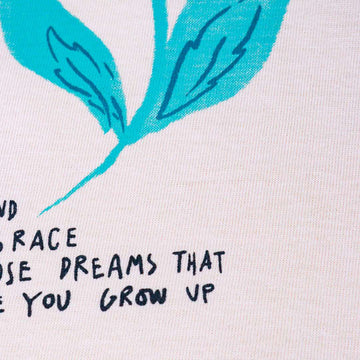 ND
BRACE
OSE DREAMS THAT
E YOU GROW UP